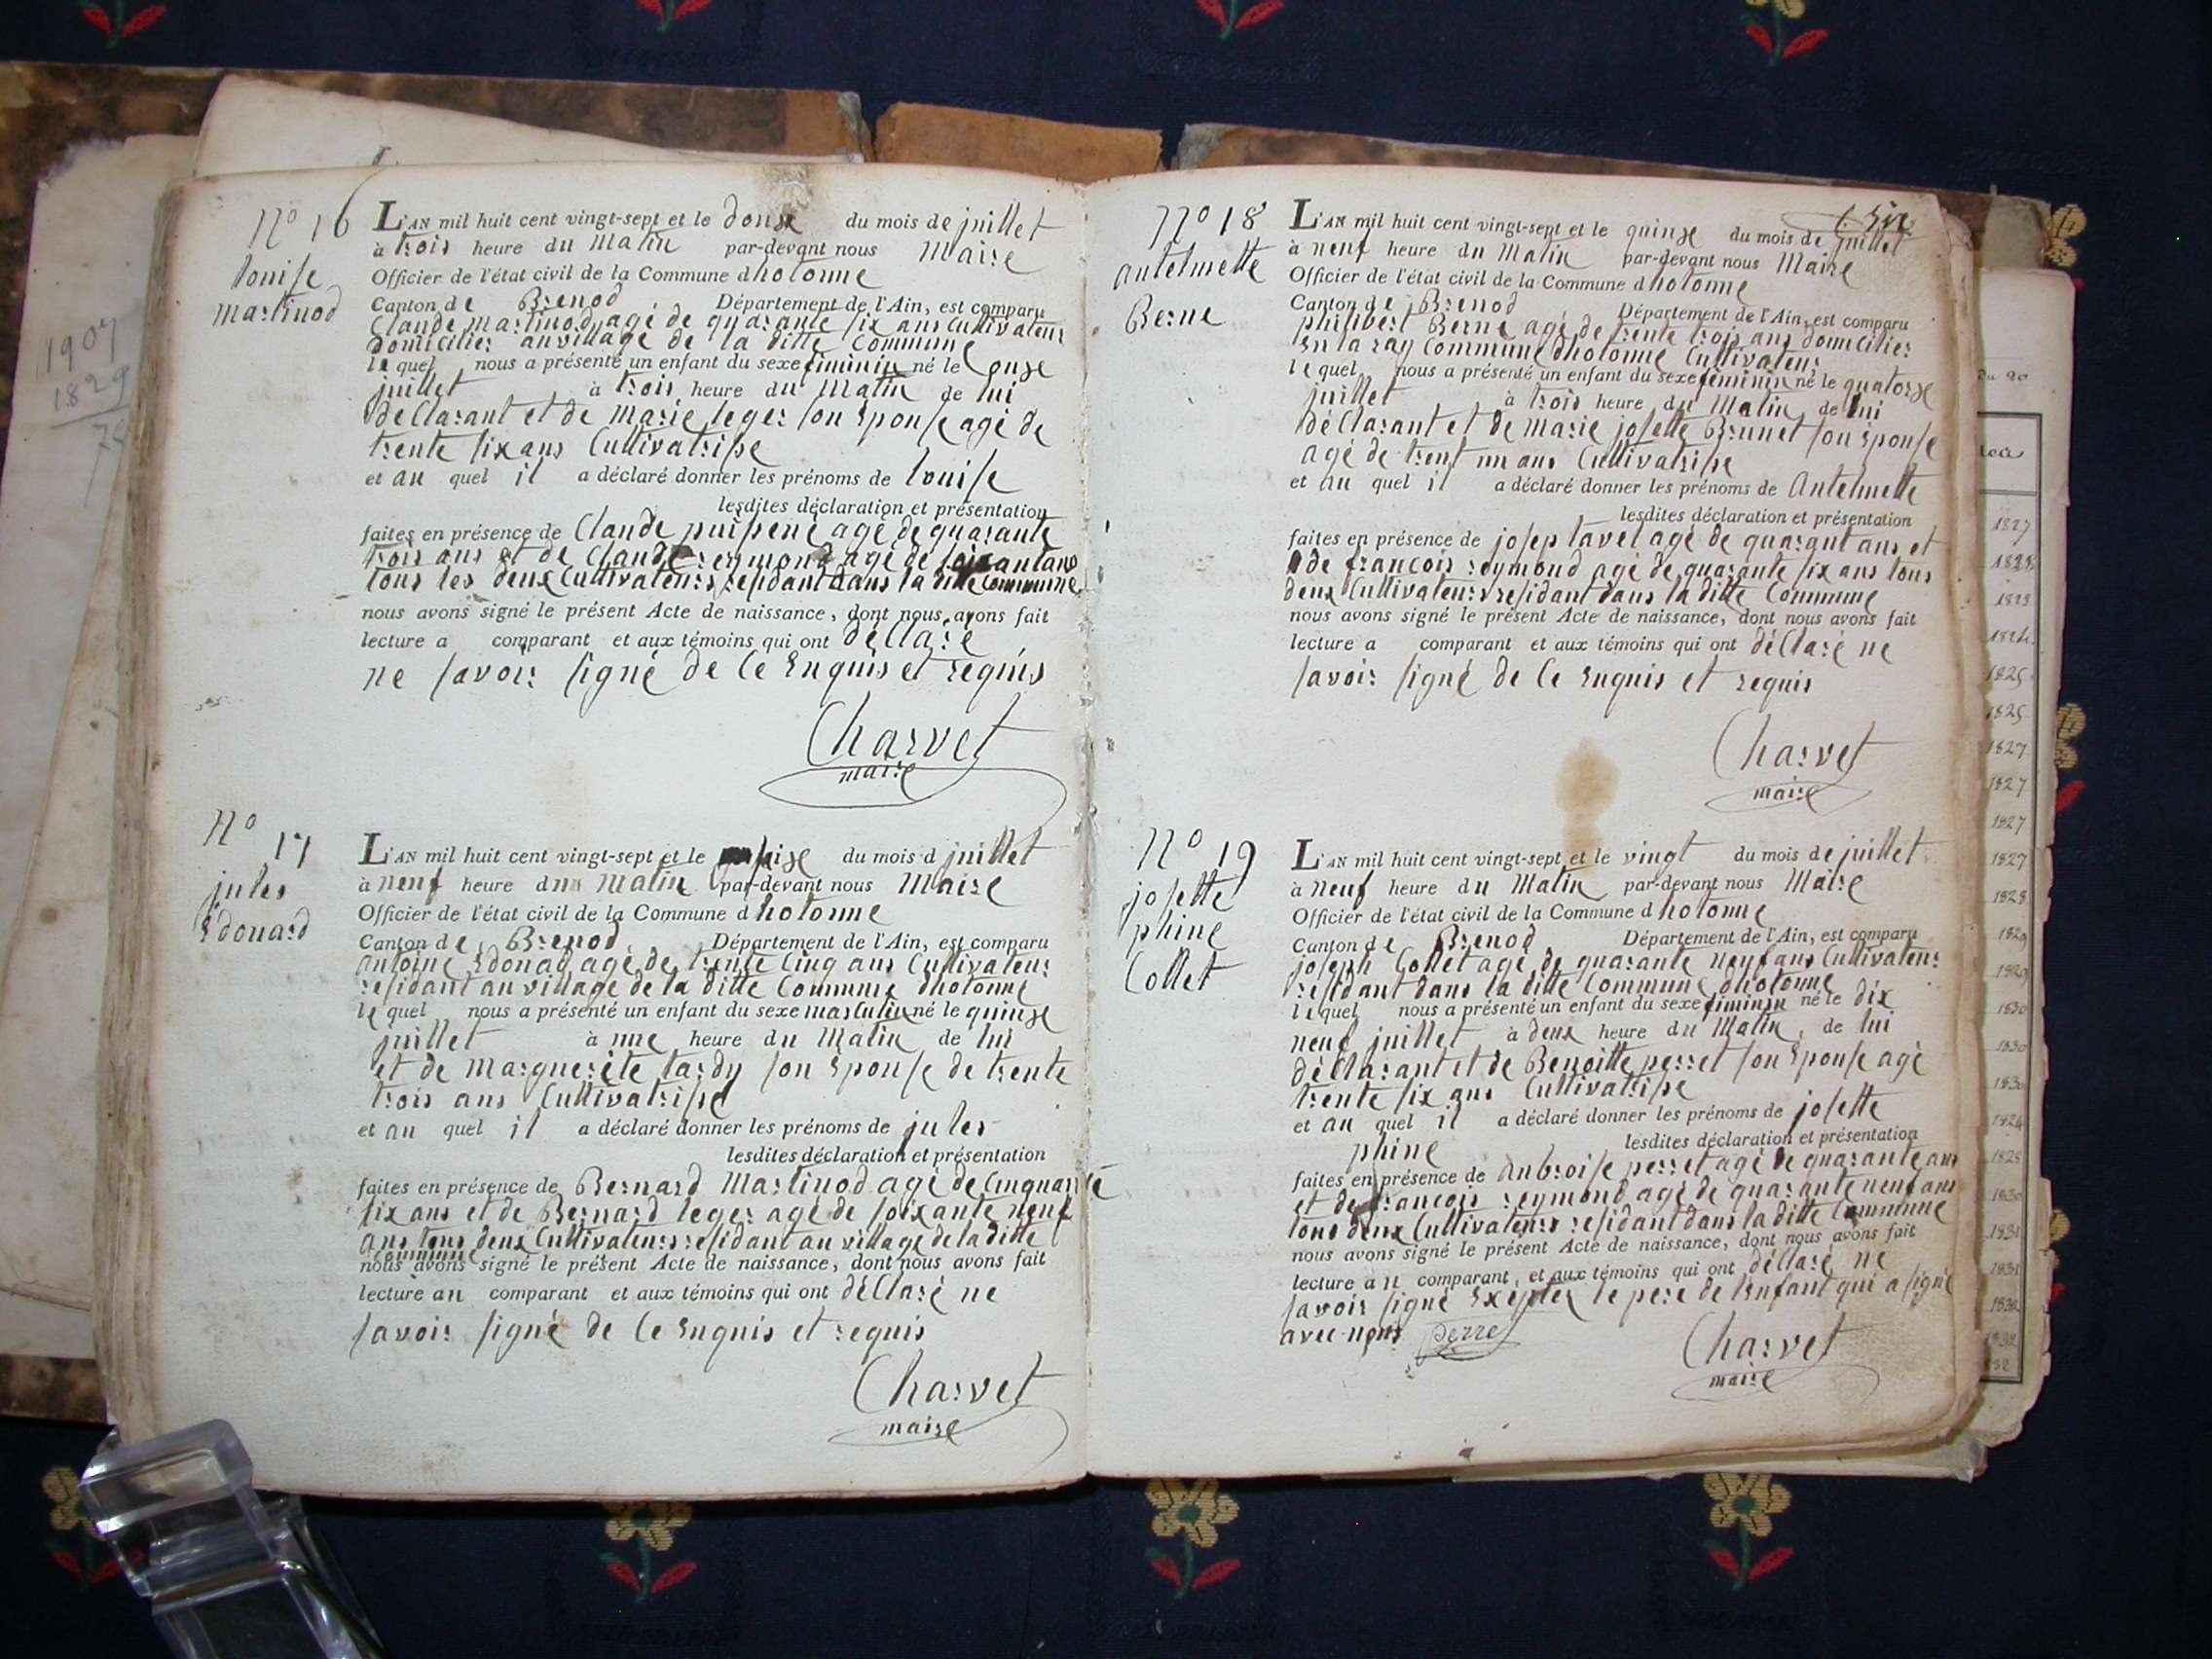 1907
1829
N° 16
Louise
martinod
L'AN mil huit cent vingt-sept et le douze du mois de juillet
à trois heure du Matin par-devant nous Maire
Officier de l'état civil de la Commune dhotonne
Canton de Brenod Département de l'Ain, est comparu
Claude martinod agé de quarante six ans Cultivateur
domicilier au village de la ditte Commune
lequel nous a présenté un enfant du sexe féminin né le onze
juillet à trois heure du Matin de lui
déClarant et de marie leger son Epouse agé de
trente six ans Cultivatrisse
et au quel il a déclaré donner les prénoms de louise
lesdites déclaration et présentation
faites en présence de Claude puissene agé de quarante
trois ans et de Claude reymond agé de soixantans
tous les deux Cultivateurs residant dans la ditte Commune
nous avons signé le présent Acte de naissance, dont nous avons fait
lecture a comparant et aux témoins qui ont déClaré
ne savoir signé de Ce Enquis et requis
Charvet
maire
N° 17
jules
Edouard
L'AN mil huit cent vingt-sept et le seize du mois d juillet
à neuf heure du Matin par-devant nous Maire
Officier de l'état civil de la Commune dhotonne
Canton de Brenod Département de l'Ain, est comparu
antoine Edouad agé de trente Cinq ans Cultivateur
residant au village de la ditte Commune dhotonne
lequel nous a présenté un enfant du sexe masculin né le quinze
juillet à une heure du Matin de lui
et de marguerite tardy son Epouse de trente
trois ans Cultivatrisse
et au quel il a déclaré donner les prénoms de jules
lesdites déclaration et présentation
faites en présence de Bernard Martinod agé de Cinquante
six ans et de Bernard leger agé de soixante neuf
ans tous deux Cultivateurs residant au village de la ditte
Commune
nous avons signé le présent Acte de naissance, dont nous avons fait
lecture au comparant et aux témoins qui ont déClaré ne
savoir signé de Ce Enquis et requis
Charvet
maire
N° 18
antelmette
Berne
L'AN mil huit cent vingt-sept et le quinze du mois de juillet
à neuf heure du Matin par-devant nous Maire
Officier de l'état civil de la Commune dhotonne
Canton de Brenod Département de l'Ain, est comparu
philibert Berne agé de trente trois ans domicilier
En la ray Commune dhotonne Cultivateur
lequel nous a présenté un enfant du sexe féminin né le quatorze
juillet à trois heure du Matin de lui
déClarant et de marie josette Brunet son Epouse
agé de trent un ans Cultivatrisse
et au quel il a déclaré donner les prénoms de Antelmette
lesdites déclaration et présentation
faites en présence de josep tavel agé de quarant ans et
de francois reymond agé de quarante six ans tous
deux Cultivateurs residant dans la ditte Commune
nous avons signé le présent Acte de naissance, dont nous avons fait
lecture a comparant et aux témoins qui ont déClaré ne
savoir signé de Ce Enquis et requis
Charvet
maire
N° 19
josette
phine
Collet
L'AN mil huit cent vingt-sept et le vingt du mois de juillet
à neuf heure du Matin par-devant nous Maire
Officier de l'état civil de la Commune dhotonne
Canton de Brenod Département de l'Ain, est comparu
joseph Collet agé de quarante neuf ans Cultivateur
residant dans la ditte Commune dhotonne
lequel nous a présenté un enfant du sexe féminin né le dix
neuf juillet à deux heure du Matin, de lui
déClarant et de Benoitte perret son Epouse agé
trente six ans Cultivatrisse
et au quel il a déclaré donner les prénoms de josette
phine lesdites déclaration et présentation
faites en présence de anbroise perret agé de quarante ans
et de francois reymond agé de quarante neuf ans
tous deux Cultivateurs residant dans la ditte Commune
nous avons signé le présent Acte de naissance, dont nous avons fait
lecture au comparant, et aux témoins qui ont déClaré ne
savoir signé Exepter le pere de lenfant qui a signé
avec nous perret
Charvet
maire
du 20
1827
1828
1825
1827
1827
1827
1827
1828
1829
1829
1830
1830
1830
1830
1831
1831